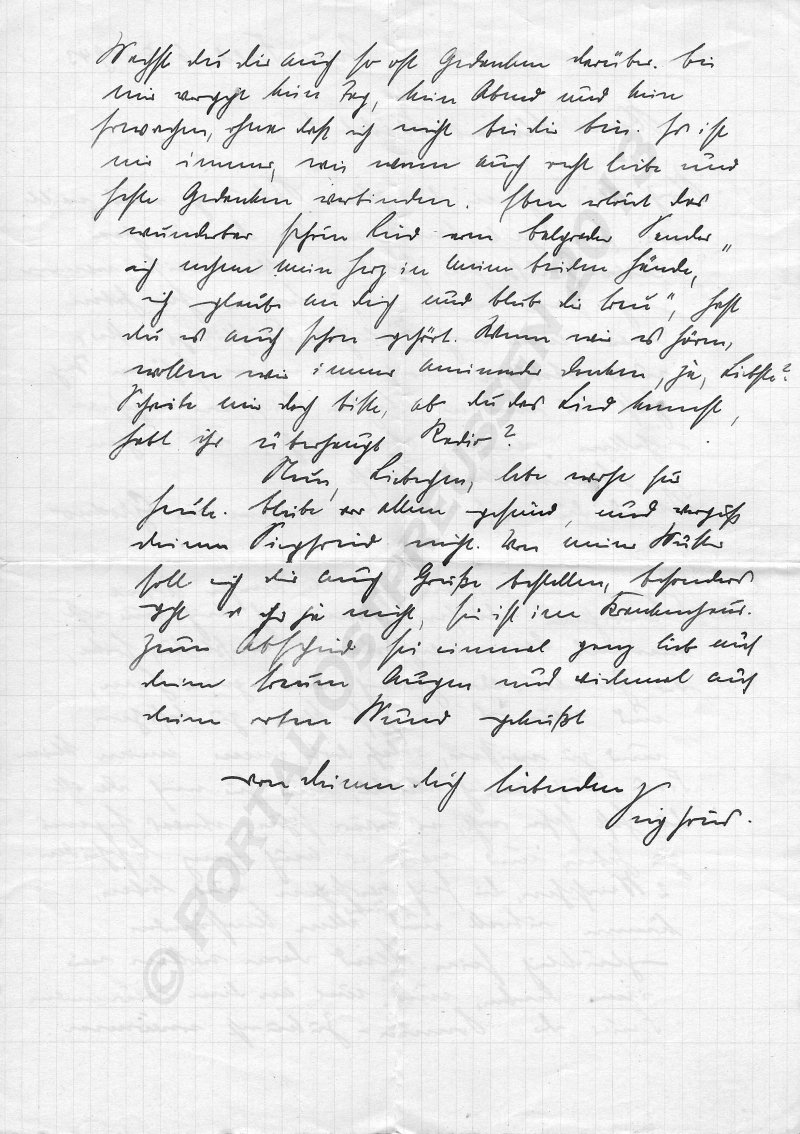 Machst du dir auch so oft Gedanken darüber. bei
mir vergeht kein Tag, kein Abend und kein
Erwachen, ohne daß ich nicht bei dir bin. Es ist
mir immer, wie wenn auch recht liebe und
feste Gedanken verbinden. Eben erklingt das
wunderbar schöne Lied vom Belgrader Sender „
ich nehme mein Herz in meine beiden Hände,
ich glaube an dich und bleib dir treu“, hast
du es auch schon gehört. Wenn wir es hören,
wollen wir immer aneinander denken, ja, Liebste?
Schreibe mir doch bitte, ob du das Lied kennst,
habt ihr überhaupt Radio?
Nun, Liebchen, lebe wohl für
heute. bleibe vor allem gesund, und vergiß
deinen Siegfried nicht. Von meiner Mutter
soll ich dir auch Grüße bestellen, besonders
geht es ihr ja nicht, sie ist im Krankenhaus.
Zum Abschied sei einmal ganz lieb auf
deine treuen Augen und vielmal auf
deinen roten Mund geküßt
von deinem dich liebenden
Siegfried.
© PORTAL-OSTPREUSSEN 2013